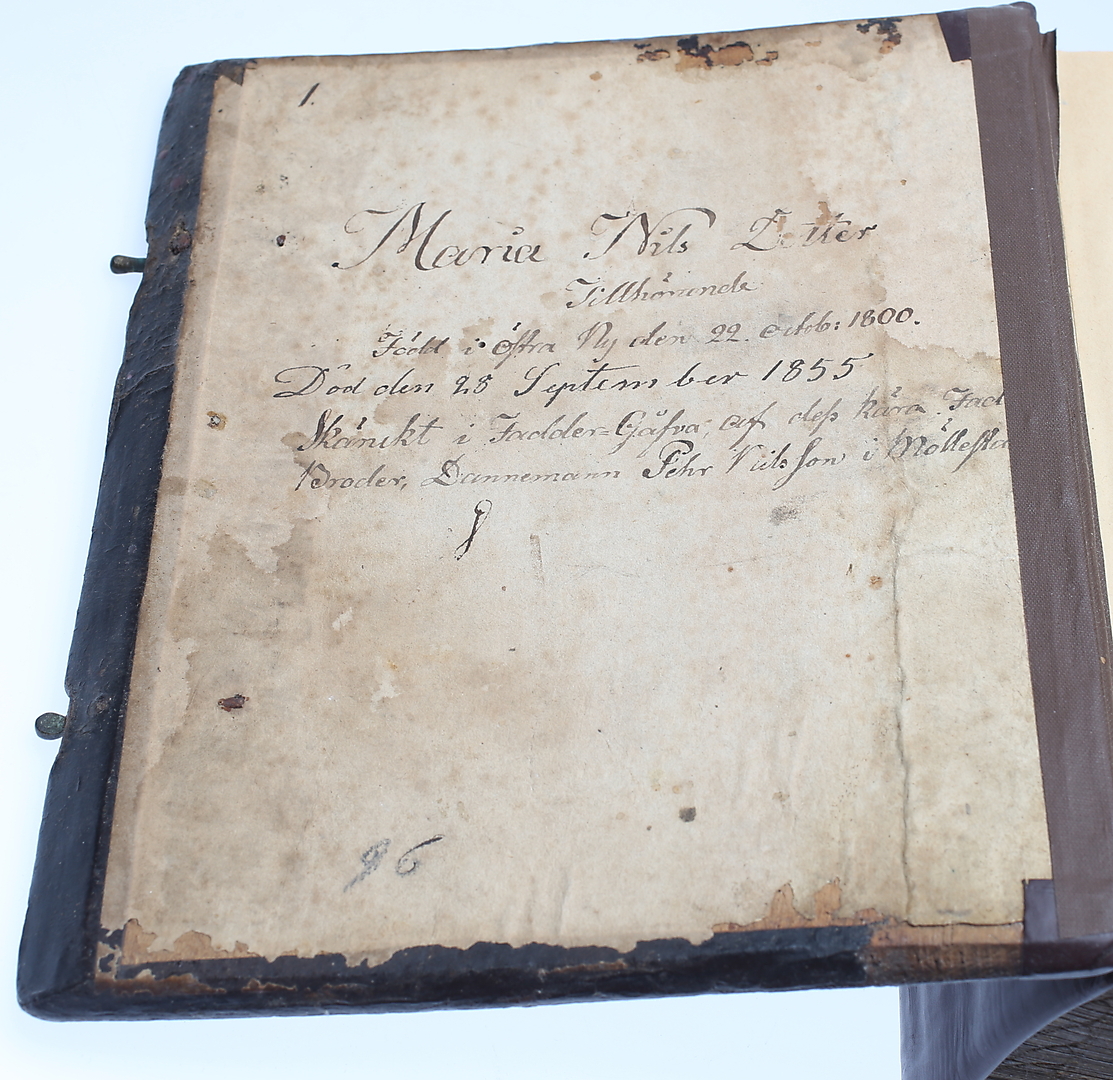 1.
Maria Nils Dotter
Tillhörande
Född i Östra Ny den 22. octob: 1800.
Död den 28 September 1855
Skänckt i Fadder=Gåfva, af dess kära Fad
Broder, Dannemann Pehr Nilsson i Mölle
96